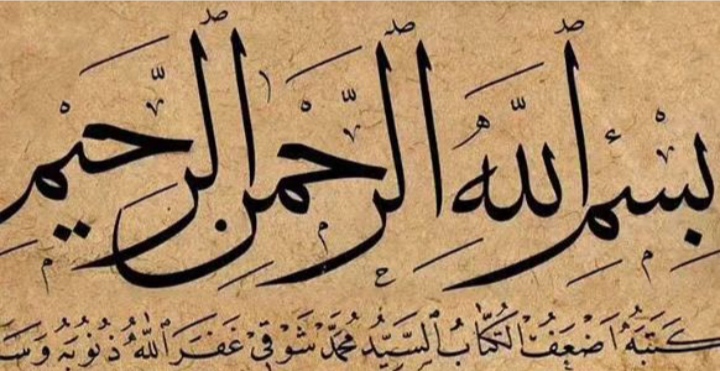 بِسْمِ اللّٰهِ الرَّحْمٰنِ الرَّحِيْمِ
كَتَبَهُ اَضْعَفُ الْكُتَّابِ السَّيِّدُ مُحَمَّدْ شَوْقِيْ غَفَرَ اللّٰهُ ذُنُوبَهُ